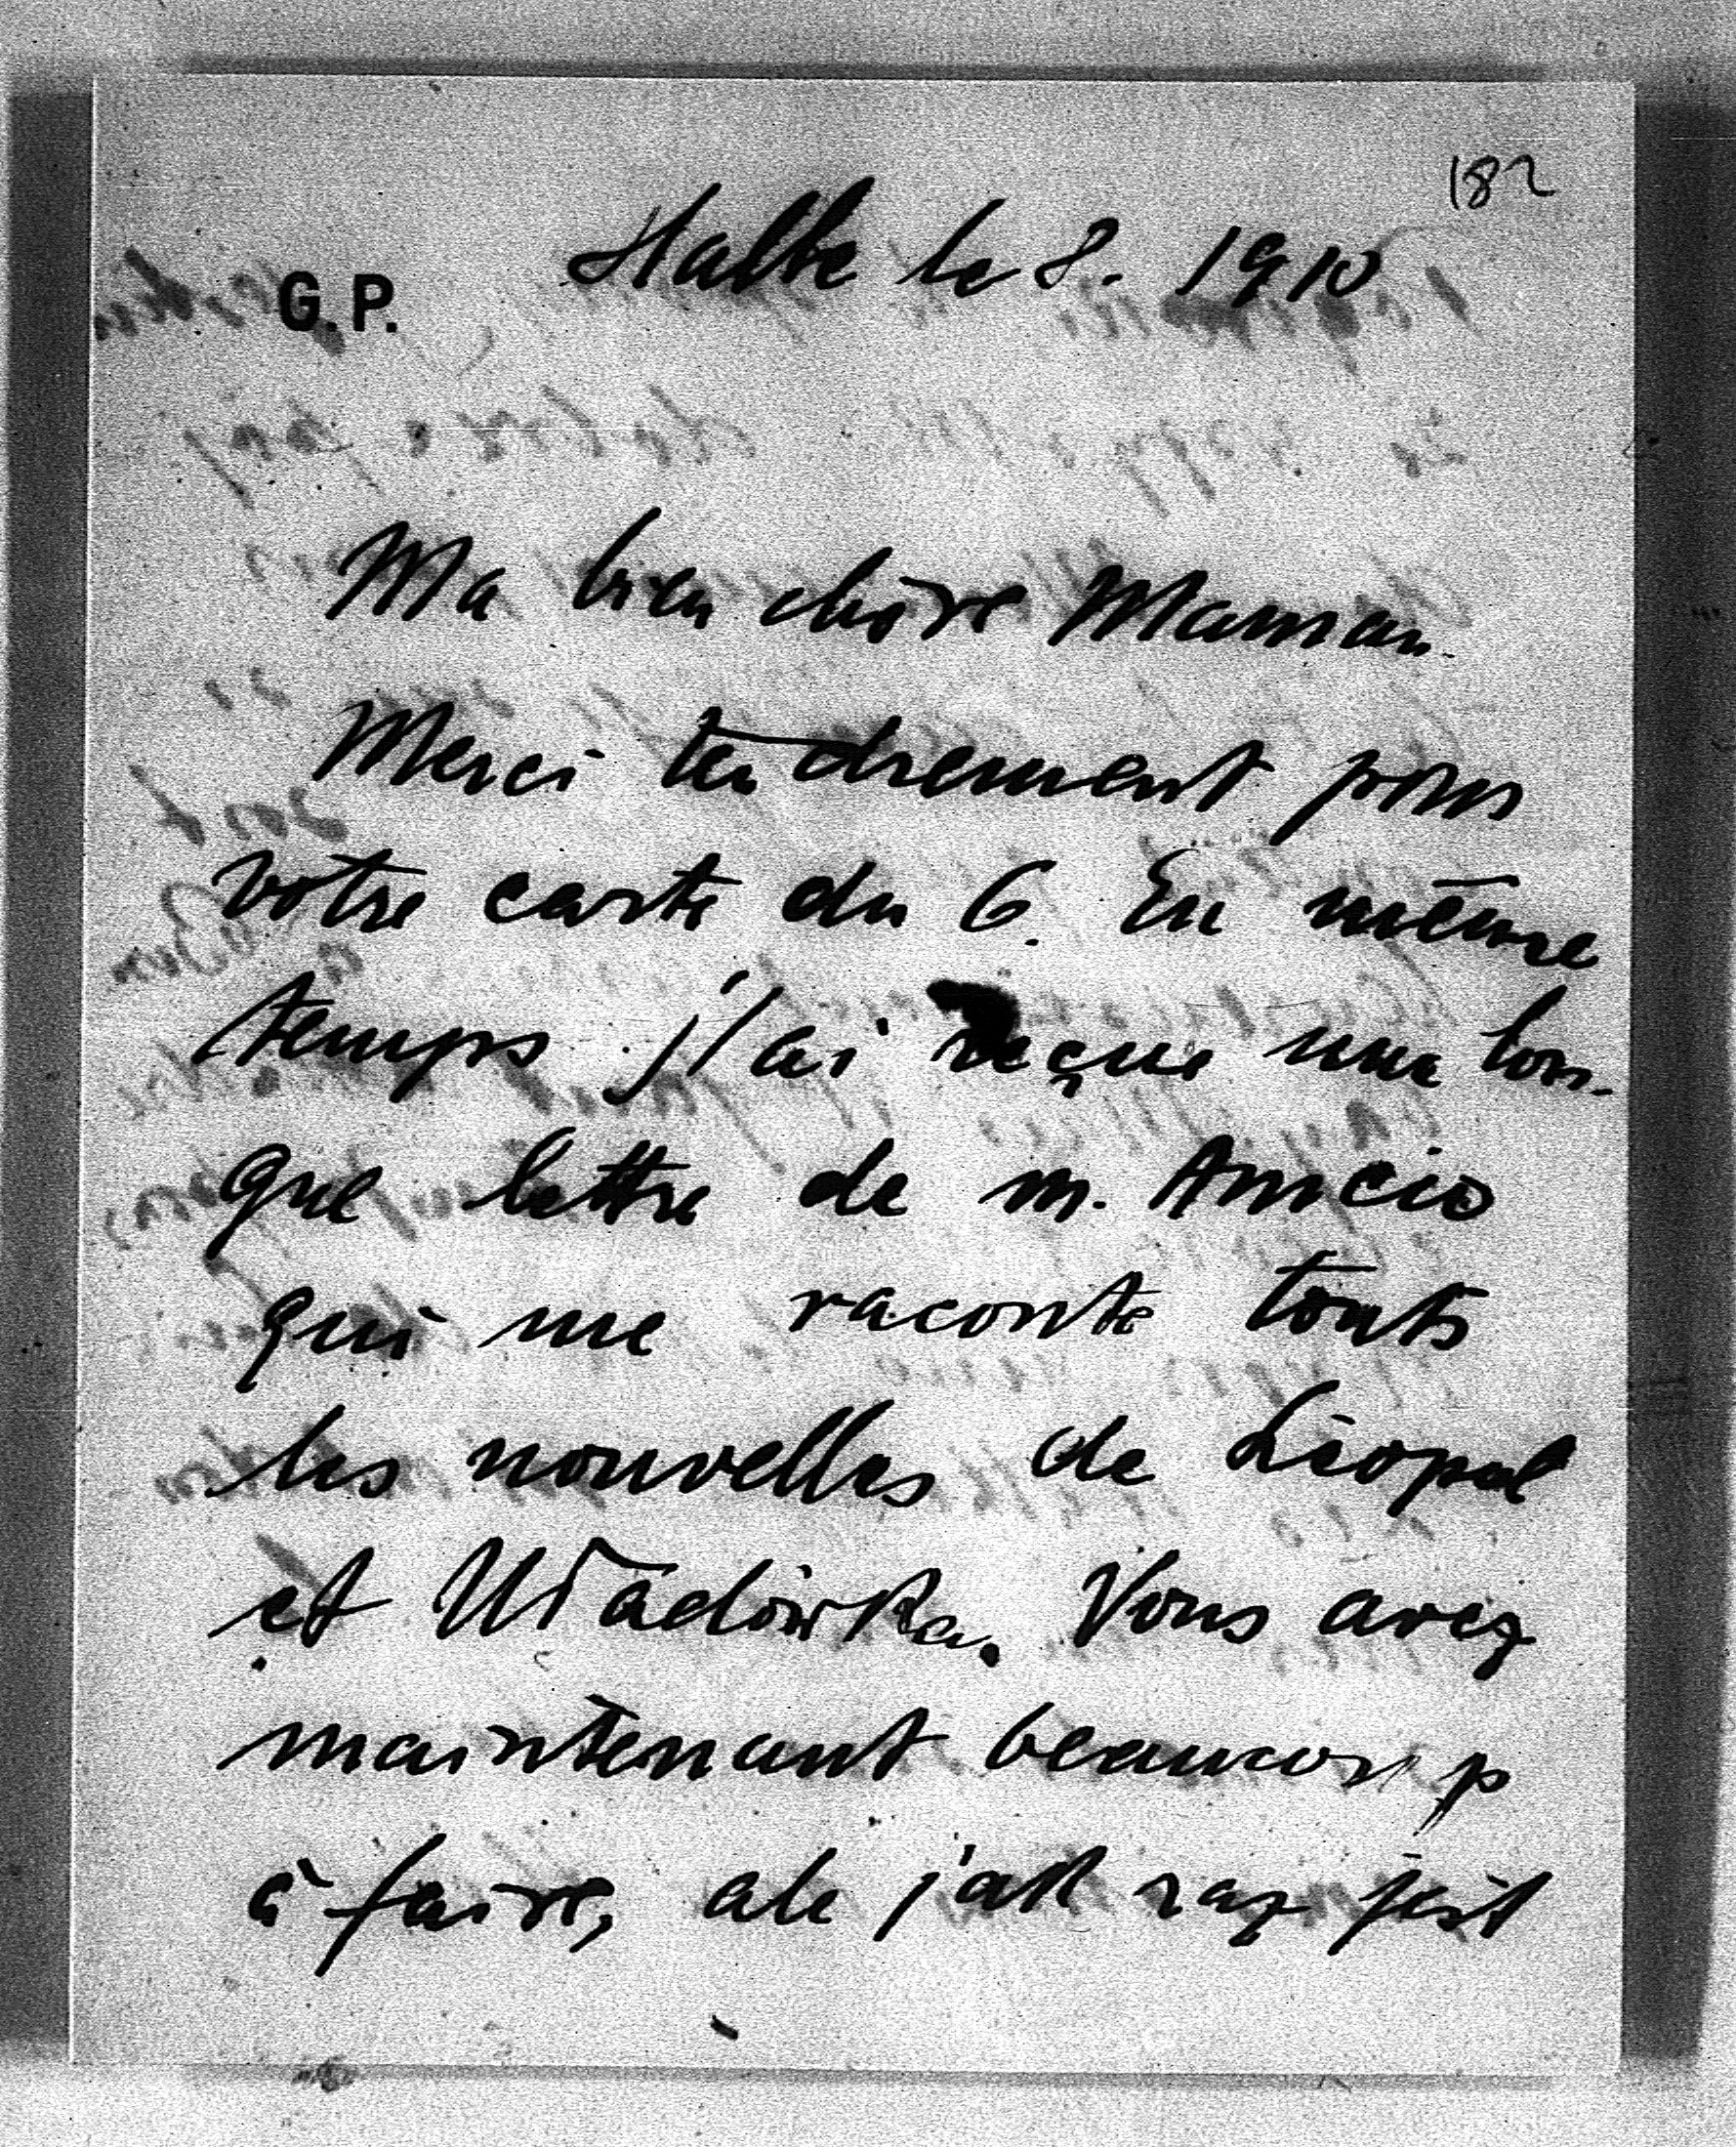 182
Halbe le 8. 1910
G.P.
Ma bien chère Maman.
Merci tendrement pour
votre carte du 6. En même
temps j'ai reçue une lon-
gue lettre de m. Amicis
qui me raconte touts
les nouvelles de Léopol
et Władówka. Vous avez
maintenant beaucoup
à faire, ale jak raz jest